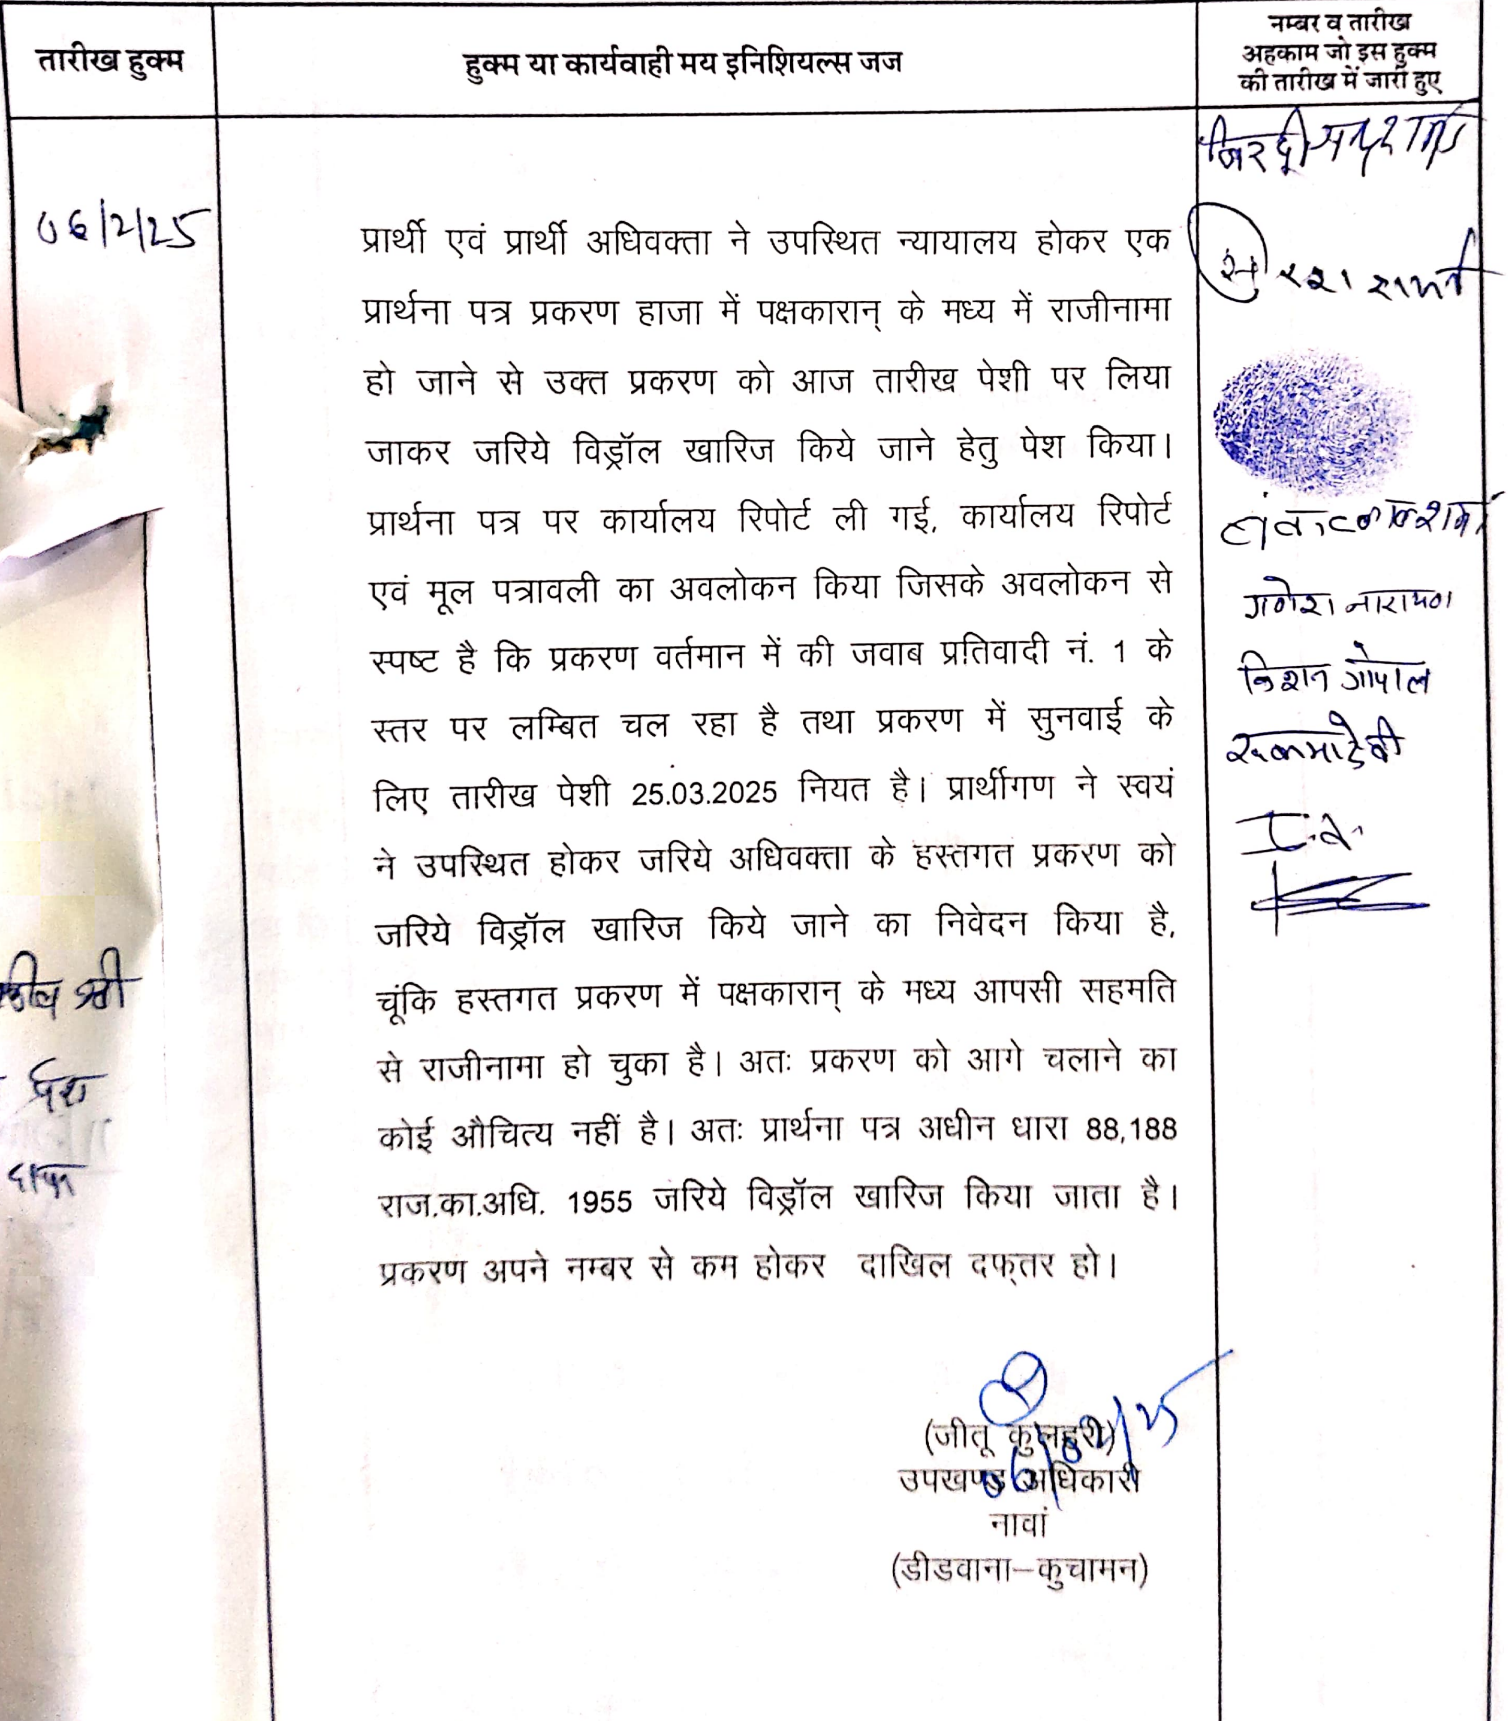 तारीख हुक्म
हुक्म या कार्यवाही मय इनिशियल्स जज
नम्बर व तारीख
अहकाम जो इस हुक्म
की तारीख में जारी हुए
06/2/25
प्रार्थी एवं प्रार्थी अधिवक्ता ने उपस्थित न्यायालय होकर एक
प्रार्थना पत्र प्रकरण हाजा में पक्षकारान् के मध्य में राजीनामा
हो जाने से उक्त प्रकरण को आज तारीख पेशी पर लिया
जाकर जरिये विड्रॉल खारिज किये जाने हेतु पेश किया।
प्रार्थना पत्र पर कार्यालय रिपोर्ट ली गई, कार्यालय रिपोर्ट
एवं मूल पत्रावली का अवलोकन किया जिसके अवलोकन से
स्पष्ट है कि प्रकरण वर्तमान में की जवाब प्रतिवादी नं. 1 के
स्तर पर लम्बित चल रहा है तथा प्रकरण में सुनवाई के
लिए तारीख पेशी 25.03.2025 नियत है। प्रार्थीगण ने स्वयं
ने उपस्थित होकर जरिये अधिवक्ता के हस्तगत प्रकरण को
जरिये विड्रॉल खारिज किये जाने का निवेदन किया है,
चूंकि हस्तगत प्रकरण में पक्षकारान् के मध्य आपसी सहमति
से राजीनामा हो चुका है। अतः प्रकरण को आगे चलाने का
कोई औचित्य नहीं है। अतः प्रार्थना पत्र अधीन धारा 88,188
राज.का.अधि. 1955 जरिये विड्रॉल खारिज किया जाता है।
प्रकरण अपने नम्बर से कम होकर दाखिल दफ्तर हो।
(जीतू कुलहरी)
उपखण्ड अधिकारी
नावां
(डीडवाना–कुचामन)
06/02/25
गणेश नारायण
किशन गोपाल
रूकमादेवी